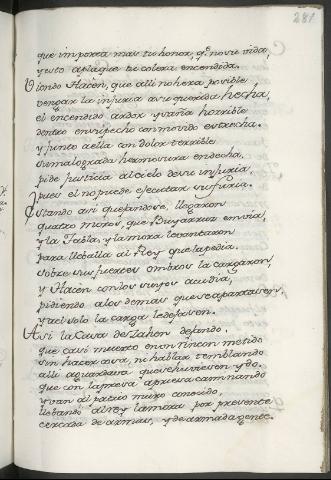 281
que importa mas tu honor, q.e no vie vida,
y esto aplaque tu colera encendida.
Viendo Hacèn, que alli no hera posible
vengar la injuria a su querida hecha,
el encendido ardor, y saña horrible
dentro en su pecho conmovido estrecha.
y junto a ella con dolor terrible
su malograda hermosura endecha,
pide justicia al cielo de su injuria,
pues el no puede ejecutar su furia.
Estando asi quejandose, llegaron
quatro moros, que Buyarruz envia,
y la Tabla, y la mora levantaron
para llevalla al Rey que la pedia.
sobre sus fuertes ombros la cargaron,
y Hacèn con los suyos acudia,
pidiendo a los demas que se apartasen,
y a el solo la carga le dejasen.
Asi la Casa de Zahen dejando,
que casi muerto en un rincon metido
sin hacer cava, ni hablar temblando
alli aguardava que se huviesen ydo.
que con la presa apriesa caminando
y van al patio muro conocido,
llebando al rey la mora por presente
cercada de armas, y de armada gente.